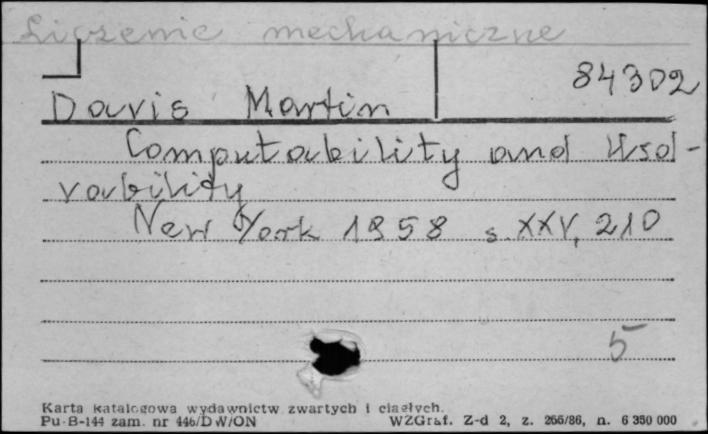 Liczenie mechaniczne
84302
Davis Martin
Computability and Usol-
vability
New York 1958 s. XXV, 210
5
Karta katalogowa wydawnictw zwartych i ciągłych.
Pu-B-144 zam. nr 446/DW/ON WZGraf. Z-d 2, z. 266/86, n. 6 350 000